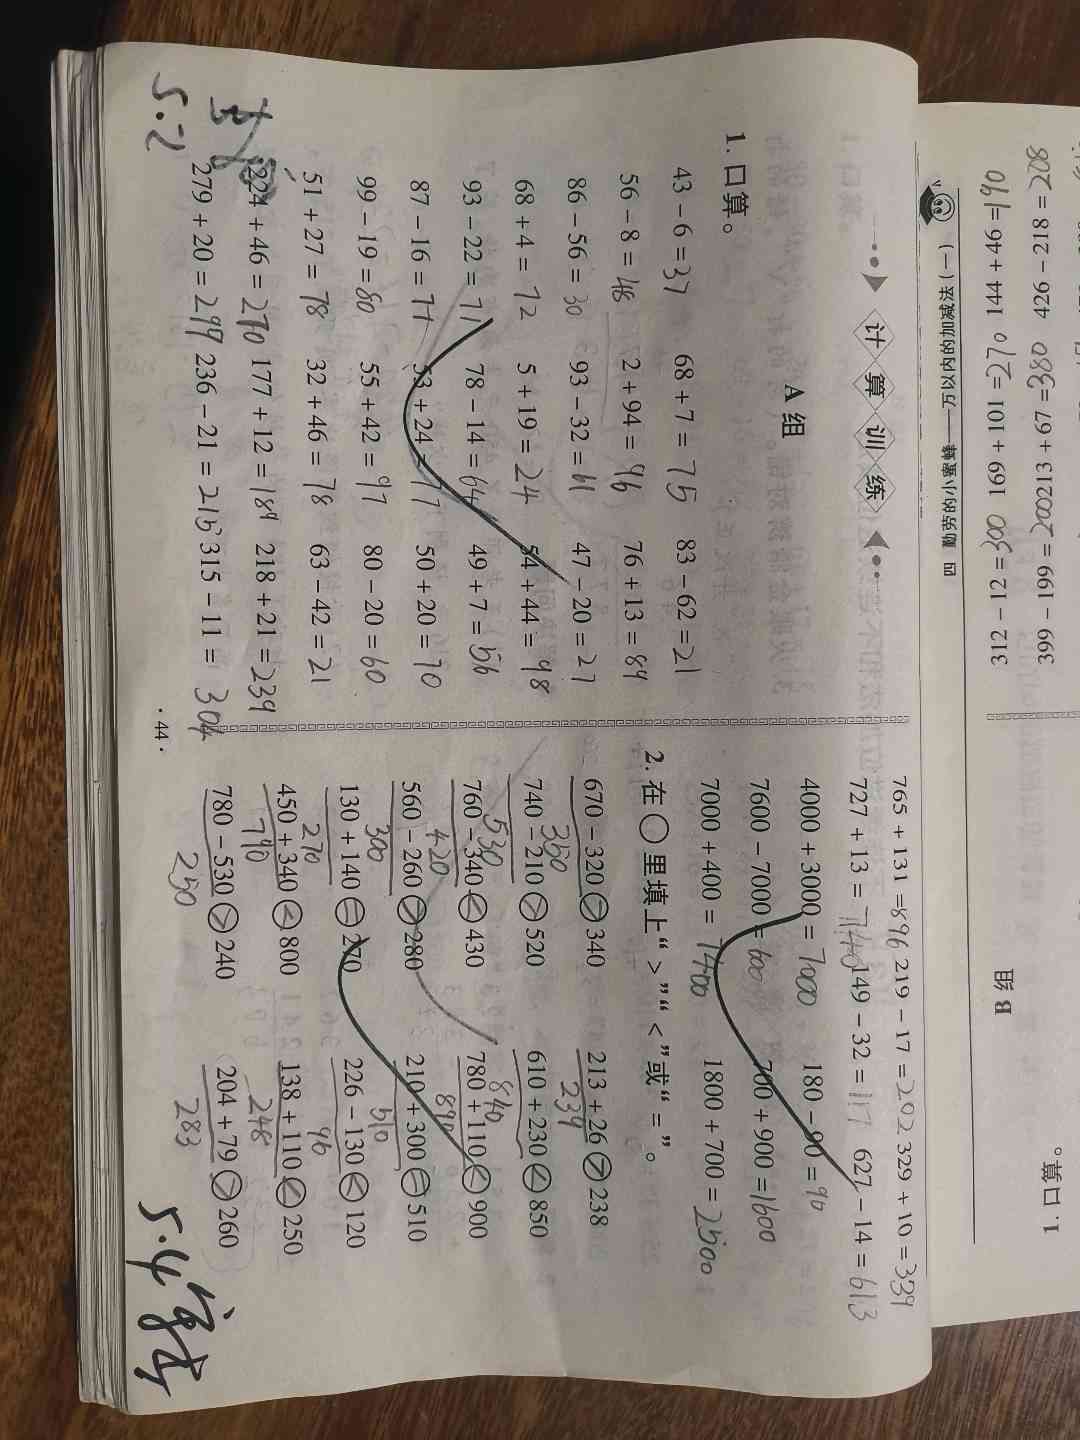 四 勤劳的小蜜蜂——万以内的加减法(一)
312－12＝300 169＋101＝270 144＋46＝190
399－199＝200 213＋67＝380 426－218＝208
B 组
1. 口算。
计算训练
A 组
1. 口算。
43－6＝37 68＋7＝75 83－62＝21
56－8＝48 2＋94＝96 76＋13＝89
86－56＝30 93－32＝61 47－20＝27
68＋4＝72 5＋19＝24 54＋44＝98
93－22＝71 78－14＝64 49＋7＝56
87－16＝71 53＋24＝77 50＋20＝70
99－19＝80 55＋42＝97 80－20＝60
51＋27＝78 32＋46＝78 63－42＝21
224＋46＝270 177＋12＝189 218＋21＝239
279＋20＝299 236－21＝215 315－11＝304
5.2
765＋131＝896 219－17＝202 329＋10＝339
727＋13＝740 149－32＝117 627－14＝613
4000＋3000＝7000 180－90＝90
7600－7000＝600 700＋900＝1600
7000＋400＝7400 1800＋700＝2500
2. 在○里填上“＞”“＜”或“＝”。
670－320 340 213＋26＞238
350 239
740－210＞520 610＋230＜850
530 840
760－340＜430 780＋110＜900
420 890
560－260＞280 210＋300＝510
300 510
130＋140＝270 226－130＜120
270 96
450＋340＜800 138＋110＜250
790 248
780－530＞240 204＋79＞260
250 283
5.4
· 44 ·